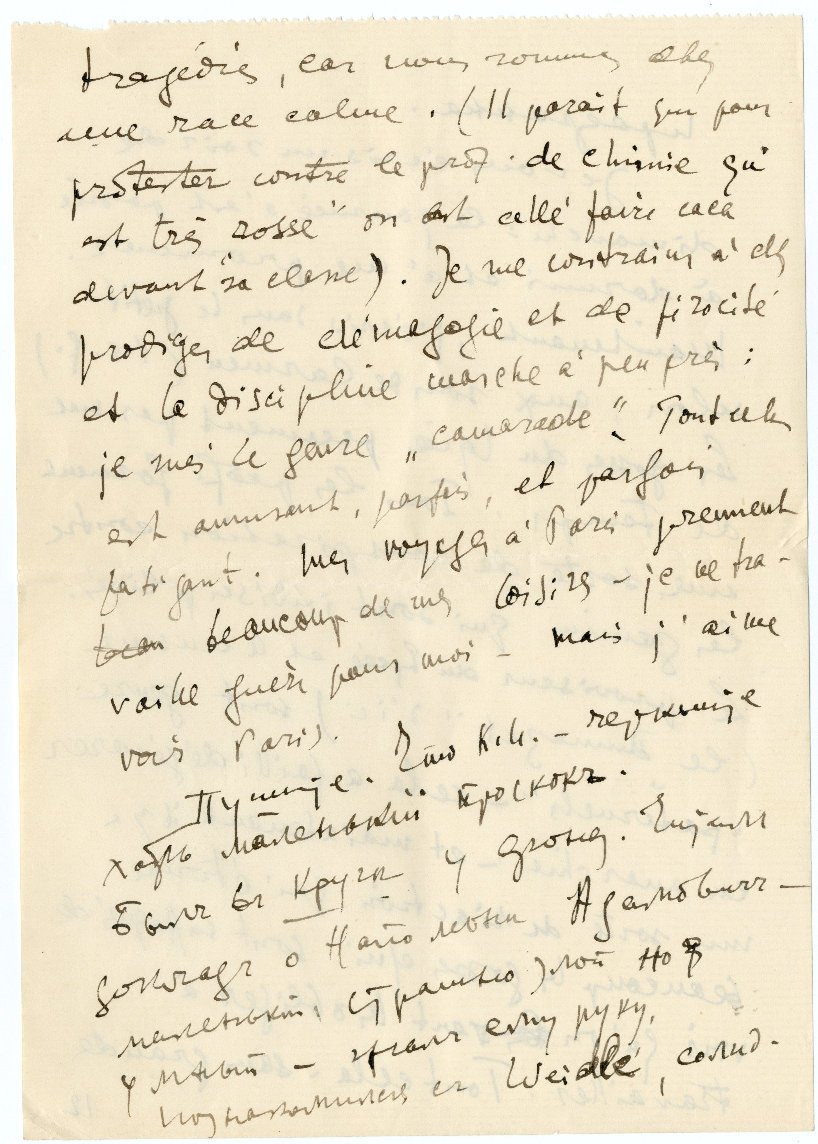 tragédies, car nous sommes des
une race calme. (Il parait que pour
protester contre le prof. de chimie qui
est très "rosse" on est allé faire caca
devant sa classe). Je me contrains à des
prodiges de démagogie et de férocité
et la discipline marche à peu près :
je suis le genre „camarade". Tout cela
est amusant, parfois, et parfois
fatigant. Mes voyages à Paris prennent
beau beaucoup de mes loisirs – je ne tra-
vaille guère pour moi – mais j'aime
voir Paris.
Пишите. Что Кн. –
хоть маленький
Былъ въ Кругѣ у Фонд. Читали
докладъ о Наполеонѣ –
маленький, страшно злой но
умный – жалъ ему руку.
Познакомился съ Weidlé, солид-